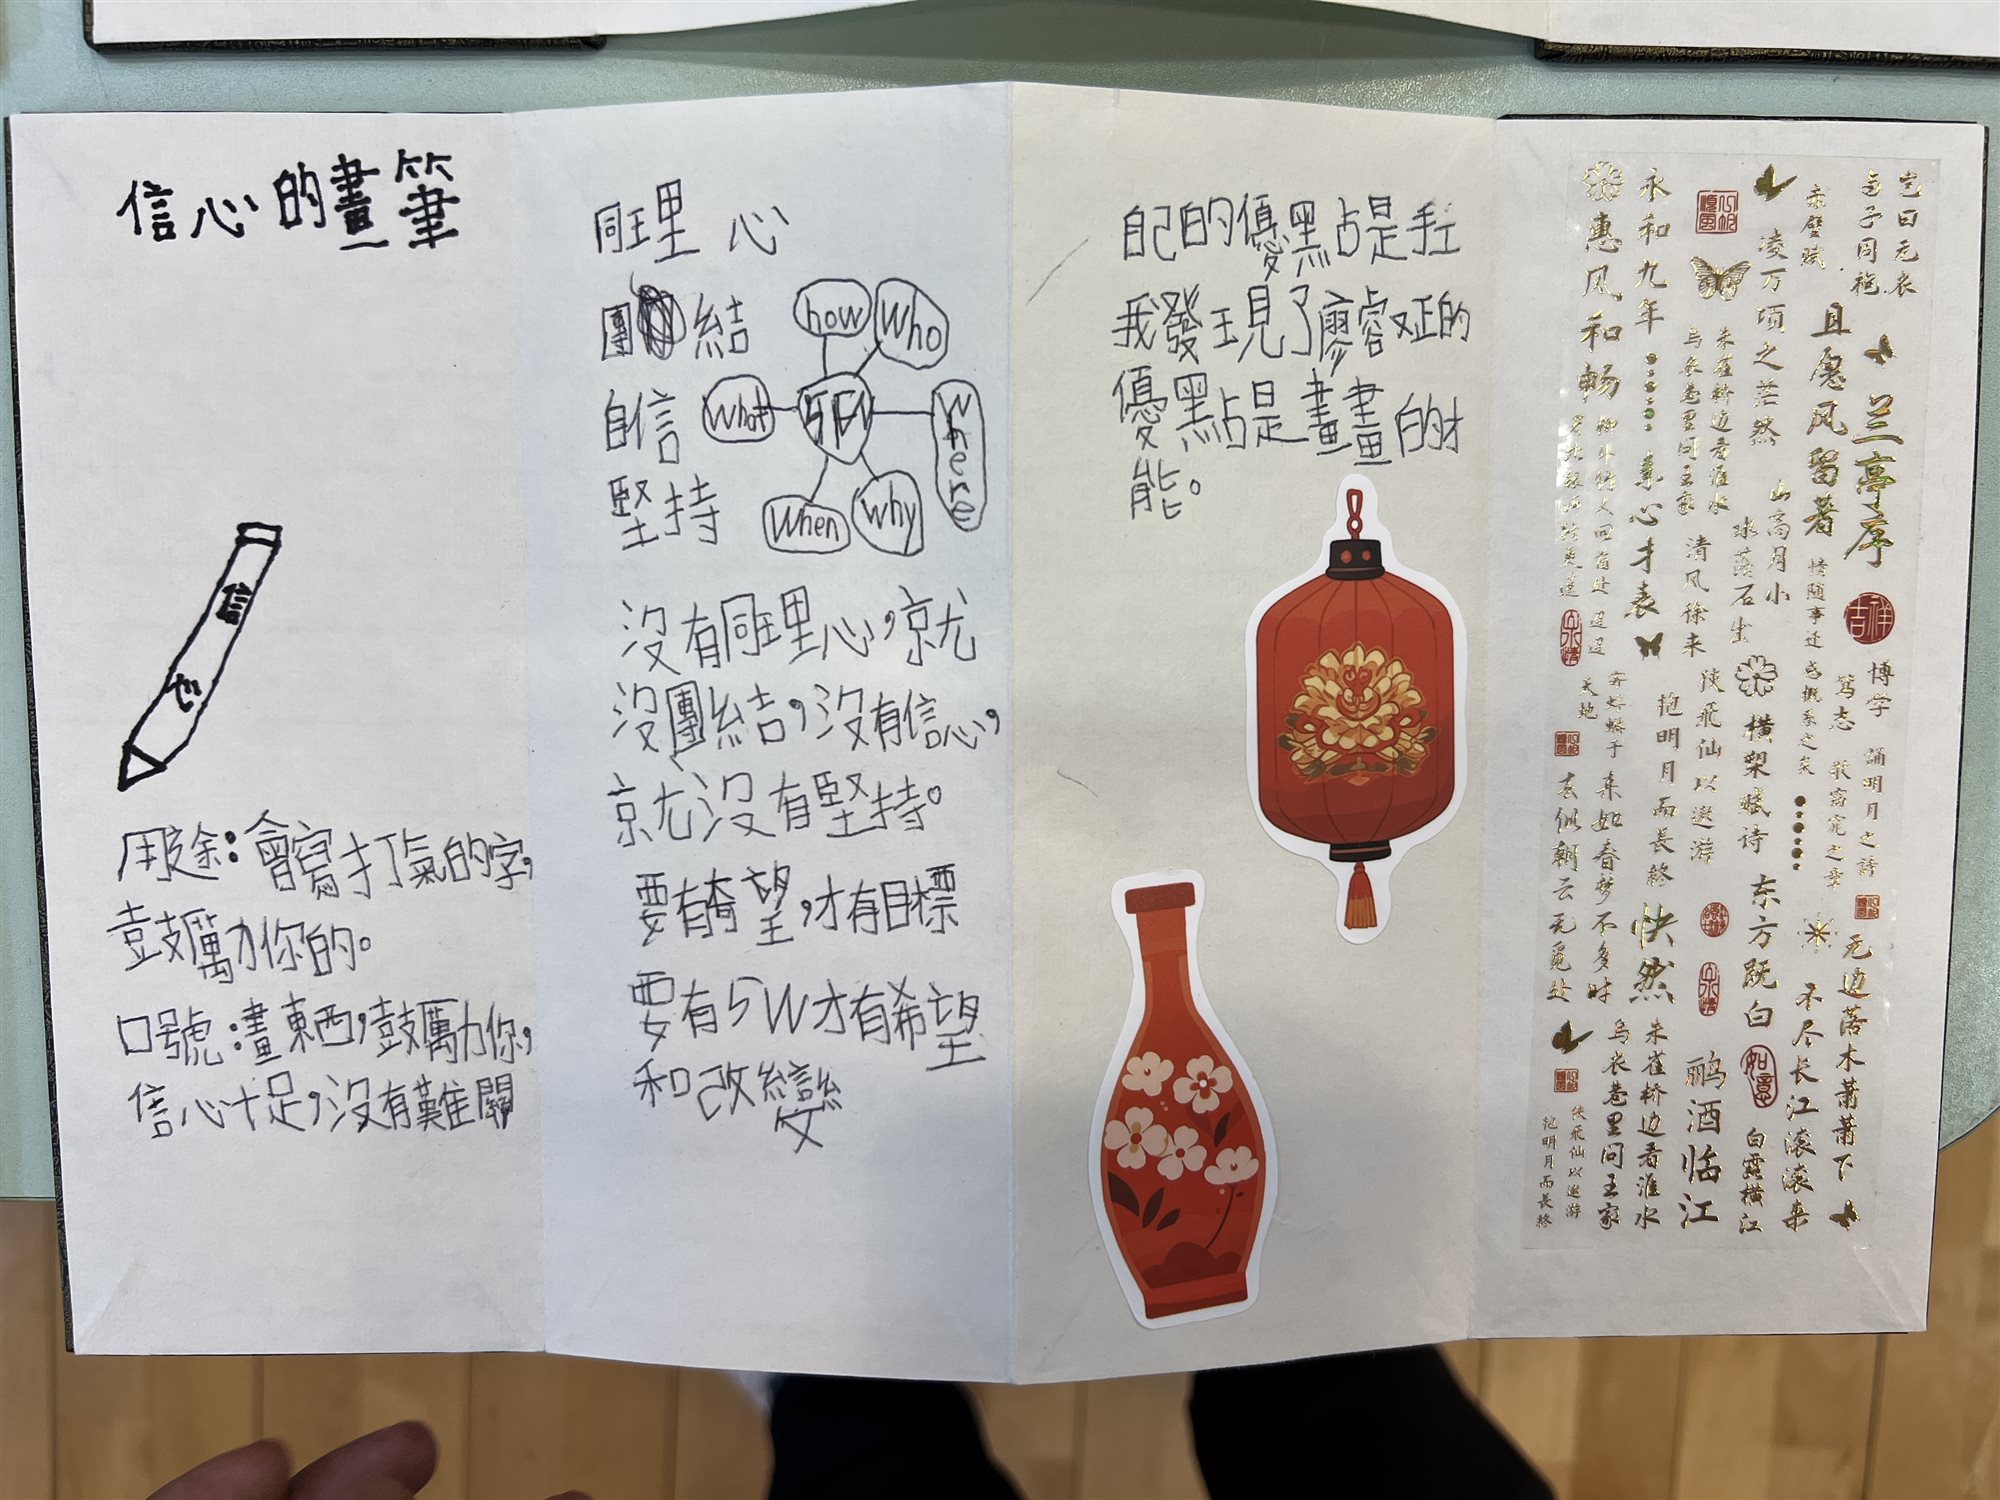 信心的畫筆
信
心
用途：會寫打氣的字，
鼓勵你的。
口號：畫東西，鼓勵你，
信心十足，沒有難關
同理心
團結
自信
堅持
how
Who
What
5W
Where
When
Why
沒有同理心，就
沒團結，沒有信心，
就沒有堅持。
要有希望，才有目標
要有5W才有希望
和改變
自己的優點是
我發現了廖睿的
優點是畫畫的才
能。
岂曰无衣
与子同袍
兰亭序
吉祥
博学
笃志
诵明月之诗
歌窈窕之章
无边落木萧萧下
不尽长江滚滚来
赤壁赋
且愿风留著
情随事迁
感慨系之矣
凌万顷之茫然
山高月小
水落石出
清风徐来
横槊赋诗
东方既白
如意
白露横江
永和九年
惠风和畅
朱雀桥边看淮水
乌衣巷里问王家
挟飛仙以遨游
抱明月而長終
快然
酾酒临江
寄蜉蝣于
天地
来如春梦不多时
去似朝云无觅处
朱雀桥边看淮水
乌衣巷里问王家
挟飛仙以遨游
抱明月而長終